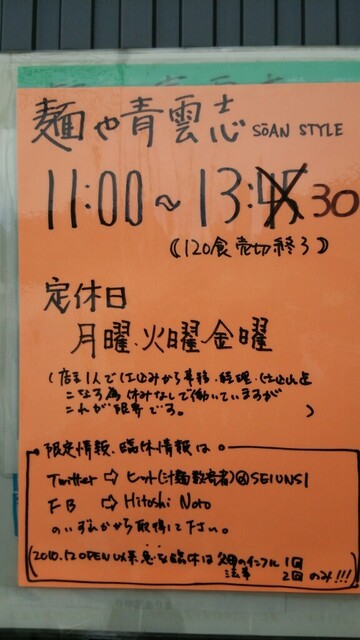 麺や青雲志 SōAN STYLE
11:00〜13:30
《120食売切終了》
定休日
月曜、火曜、金曜
(店主1人で仕込みから事務、経理、
こなす為休みなしで働いていますが
これが限界です。)
限定情報、臨休情報は
Twitter ⇨ ヒット(汁麺 @SEIUNSI
FB ⇨ Hitoshi Noto
のいずれかから取得して下さい。
(2010.12 OPEN以来 臨休は インフル 1回
法事 2回 のみ!!!)